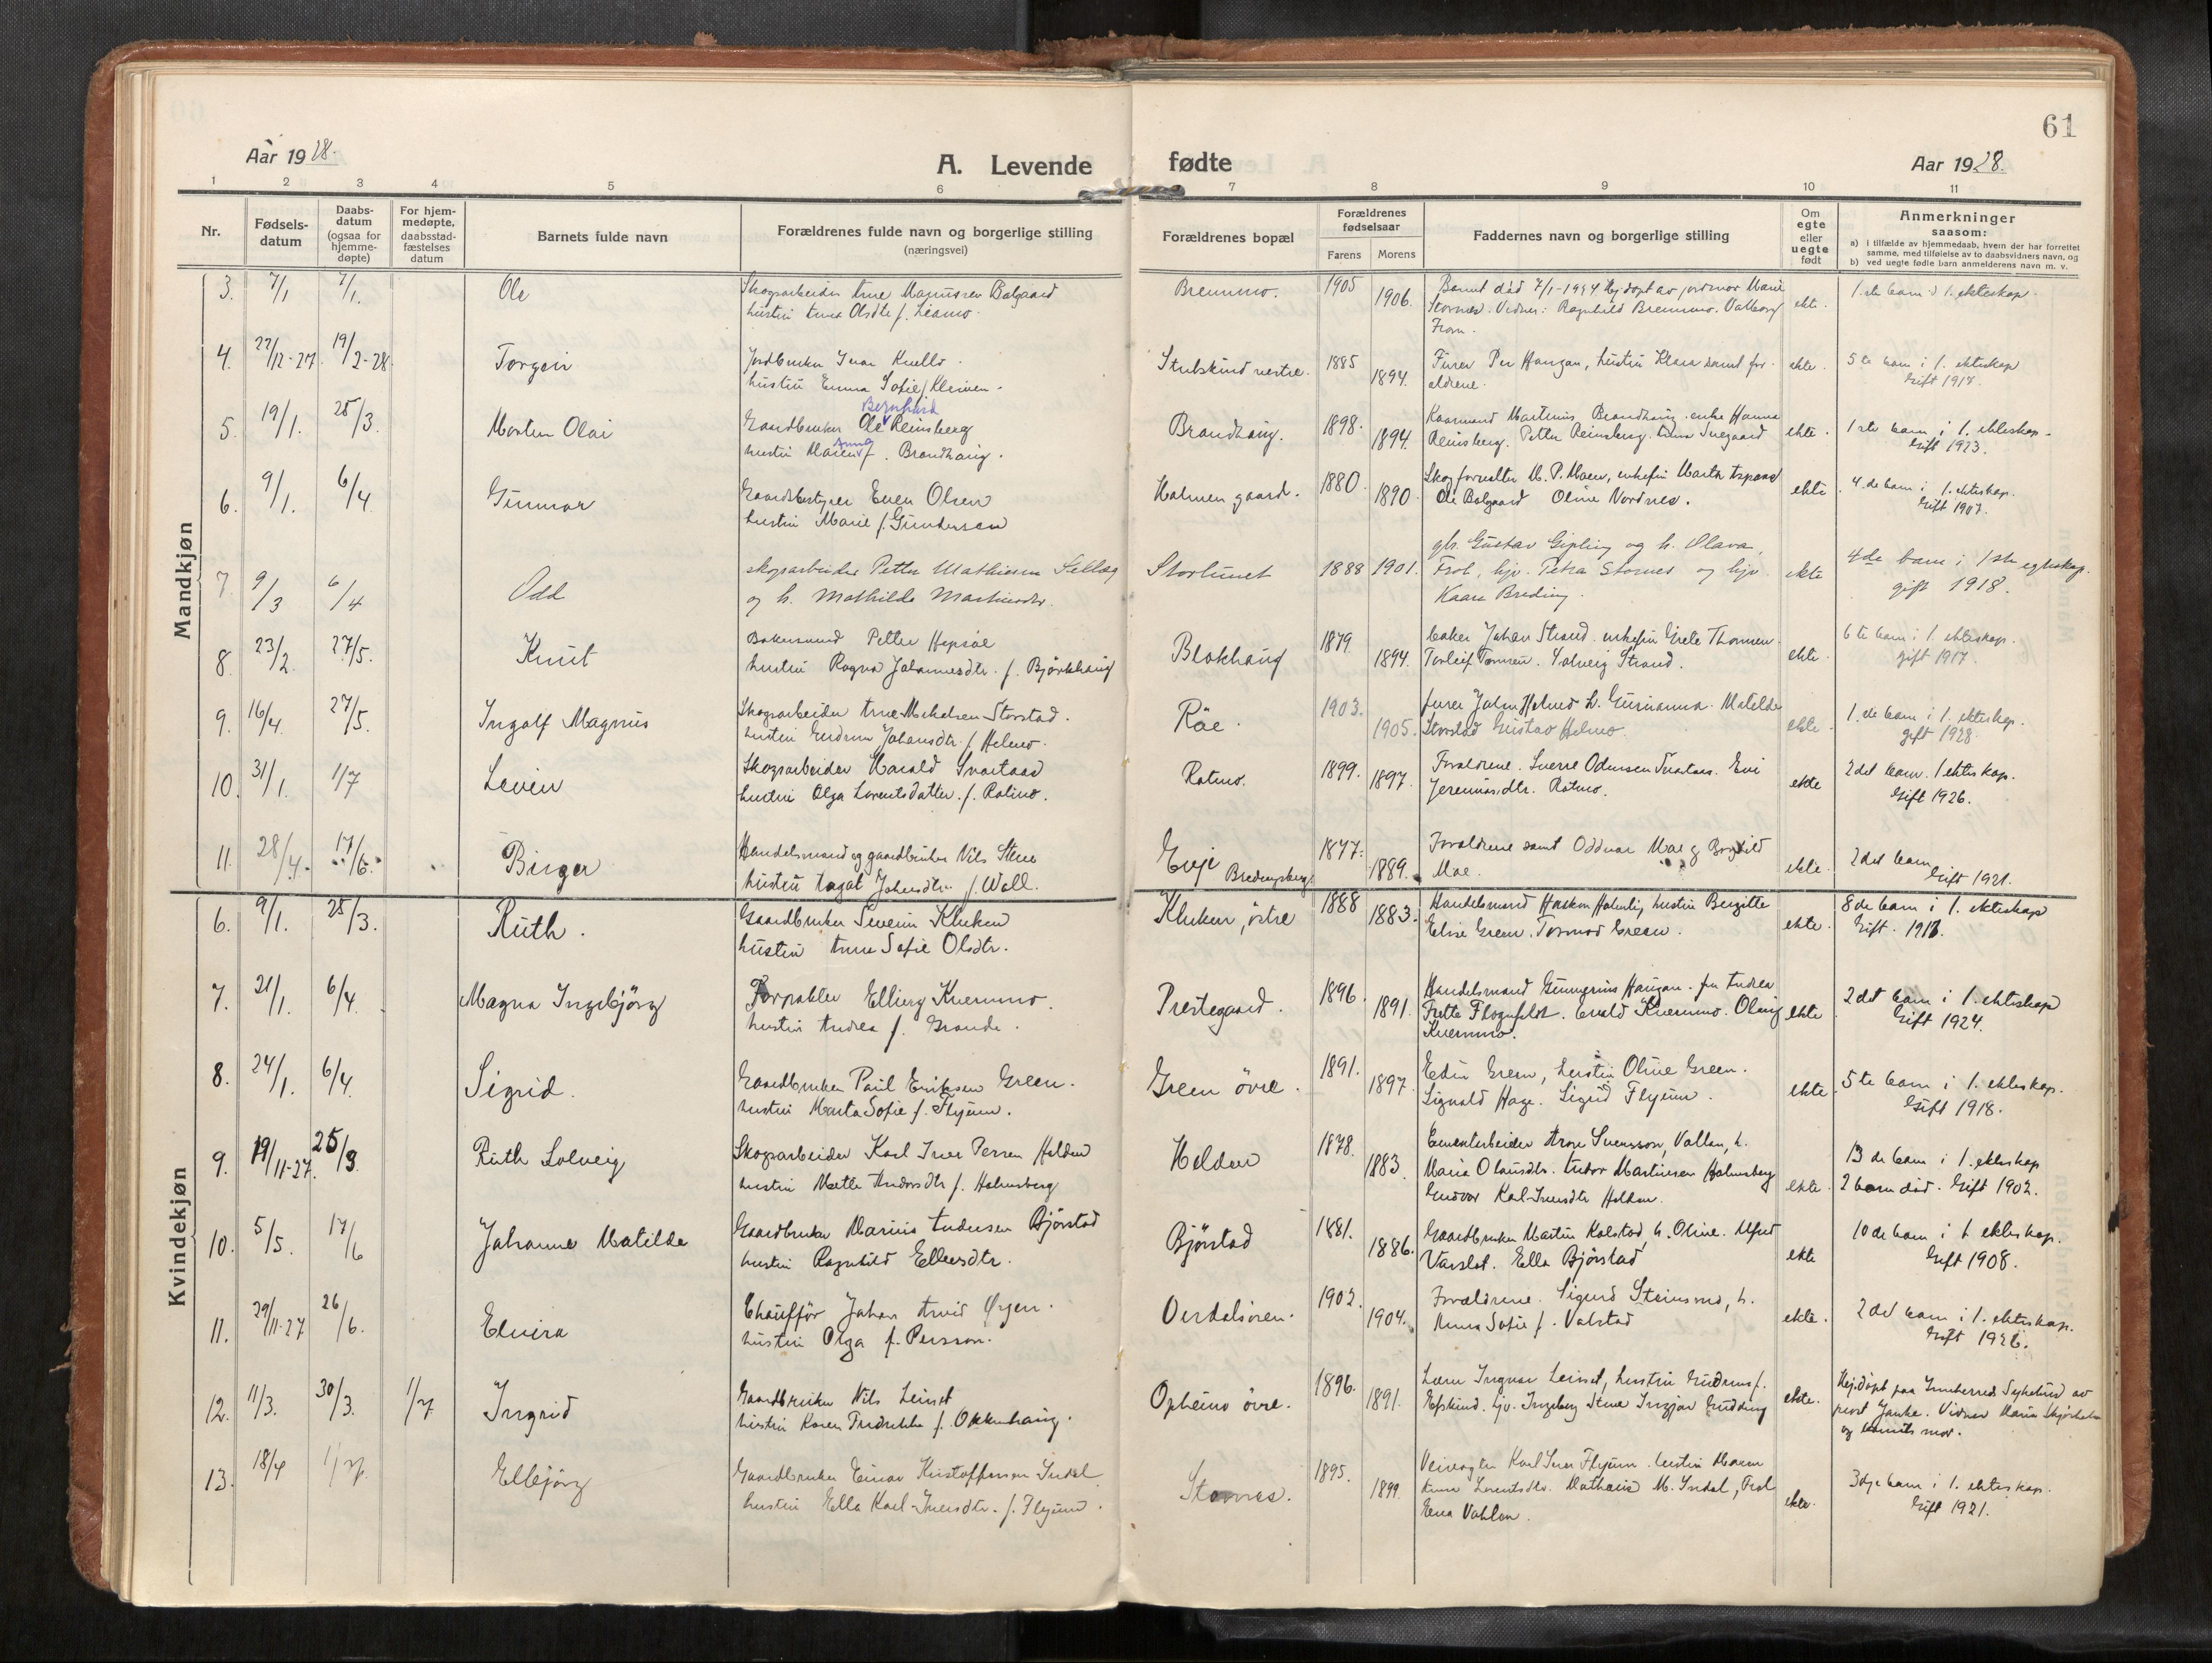 61
Aar 1928.
A. Levende fødte
Aar 1928.
1 2 3 4 5 6 7 8 9 10 11
Nr.
Fødsels-
datum
Daabs-
datum
(ogsaa for
hjemme-
døpte)
For hjem-
medøpte,
daabsstad-
fæstelses
datum
Barnets fulde navn
Forældrenes fulde navn og borgerlige stilling
(næringsvei)
Forældrenes bopæl
Forældrenes
fødselsaar
Farens Morens
Faddernes navn og borgerlige stilling
Om
egte
eller
uegte
født
Anmerkninger
saasom:
a) i tilfælde av hjemmedaab, hvem der har forrettet
samme, med tilføielse av to daabsvidners navn, og
b) ved uegte fødte barn anmelderens navn m. v.
Mandkjøn
3. 7/1 7/1. Ole
Skogsarbeider Arne Magnussen Balgaard
hustru Anna Olsdtr f. Leamo.
Bremmo. 1905 1906.
Barnet död 7/1- Hj.döpt av jordmor Marie
Stornes. Vidner: Ragnhild Bremmo. Valborg
ekte.
1.ste barn i 1. ekteskap.
4. 27/12-27 19/2-28. Torgeir
Jordbruker Ivar Kvello.
hustru Emma Sofie f. Kleiven.
Stubskind vestre. 1885 1894.
Furer Per Haugan, hustru Klara samt for-
ældrene.
ekte.
5te barn i 1. ekteskap
Gift 1917.
5. 19/1. 25/3. Morten Olai
Bernhard
Gaardbruker Ole Reinsberg
Anna
hustru Maren f. Brandhaug.
Brandhaug. 1898. 1894.
Martinius Brandhaug. enke Hanna
Reinsberg. Petter Reinsberg. Anna
ekte.
1ste barn i 1. ekteskap.
Gift 1923.
6. 9/1. 6/4. Gunnar
Gaardsbestyrer Even Olsen
hustru Marie f. Gundersen
Holmen gaard. 1880. 1890
Skogforvalter M. P. Moen, enkefru Marth Aspaas
Ole Balgaard Oline Nordnes.
ekte
4.de barn i 1. ekteskap.
Gift 1907.
7 9/3 6/4 Odd
skogsarbeider Petter Mathiesen Sellæg
og h. Mathilde Martinsdtr.
Storlunet 1888 1901.
gbr. Gustav Gipling og h. Olava,
Frol, hjv. Petra Stornes og hjv.
Kaare Breding.
ekte
4de barn i 1ste egteskap.
gift 1918.
8 23/2. 27/5. Knut
Bakersvend Petter Hepsöe
hustru Ragna Johannesdtr. f. Björkhaug
Blokhaug 1879. 1894.
baker Johan Strand. enkefru Grete Thomsen.
Torleif Tomsen. Solveig Strand.
ekte.
6te barn i 1. ekteskap.
gift 1917.
9. 16/4. 27/5. Ingolf Magnus
Skogsarbeider Arne Mikalsen Storstad.
hustru Gudrun Johansdtr. f. Helmo.
Röe. 1903. 1905.
furer John Helmo h. Gurianna. Matilde
Storstad Gustav Helmo.
ekte.
1.de barn i 1. ekteskap.
gift 1928
10. 31/1. 1/7 Leven
Skogsarbeider Harald Svartaas
hustru Olga Lorentsdatter. f. Rotmo.
Rotmo. 1899. 1897.
Forældrene. Sverre Odinsen Svartaas. Evi
Jeremiasdtr. Rotmo.
ekte
2det barn. 1 ekteskap.
Gift 1926.
11. 28/4. 17/6. Birger
Handelsmand og gaardbruker Nils Stene
hustru Aagot Johansdtr. f. Woll.
Evje Bredingsberg 1877. 1889.
Forældrene samt Oddvar Moe og Borghild
Moe.
ekte.
2det barn
Gift 1921.
Kvindekjøn
6. 9/1. 25/3. Ruth.
Gaardbruker Severin Kluken
hustru Anna Sofie Olsdtr.
Kluken, östre 1888 1883.
Handelsmand Haakon Holmli, hustru Bergitte
Elise Green. Tormod Green.
ekte.
8de barn i 1. ekteskap
Gift.
7. 21/1. 6/4. Magna Ingebjörg
Forpakter Elberg Kvernmo.
hustru Andrea f. Grande.
Prestegaard. 1896. 1891.
Handelsmand Gunnerius Haugan. fru Andrea
Kvernmo.
ekte
2det barn i 1. ekteskap
Gift 1924.
8. 24/1. 6/4. Sigrid.
Gaardbruker Paul Eriksen Green.
hustru Marta Sofie f. Flyum.
Green övre. 1891. 1897.
Edin Green, hustru Oline Green.
Sigvald Hage. Sigrid Flyum.
ekte.
5te barn i 1. ekteskap.
Gift 1918.
9. 19/11-27. 25/3. Ruth Solveig
Skogsarbeider Karl Iver Persen Holden
hustru Mette Andorsdtr f. Holmsberg
Holden 1878. 1883.
Cementarbeider Arne Svensson, Vollen, h.
Maria Olausdtr. Andor Martinsen Holmsberg
Gudvor Karl-Iversdtr Holden.
ekte.
13 de barn i 1. ekteskap
2 barn död. Gift 1902.
10. 5/5. 17/6 Johanne Matilde
Gaardbruker Marius Andersen Björstad
hustru Ragnhild Ellevsdtr.
Björstad 1881. 1886.
Gaardbruker Martin Kolstad, h. Oline. Alfred
Varslot. Ella Björstad
ekte
10de barn i 1. ekteskap.
Gift 1908.
11. 29/11-27 26/6. Elvira
Chaufför Johan Arvid Öyen.
hustru Olga f. Persson.
Verdalsören. 1902. 1904.
Forældrene. Sigurd Steinsmo, h.
Anna Sofie f. Valstad
ekte.
2det barn i 1. ekteskap.
Gift 1926.
12. 11/3. 30/3. 1/7 Ingrid
Gaardbruker Nils Leirset
hustru Karen Fredrikke f. Okkenhaug.
Opheim övre. 1896. 1891.
Lærer Ingvar Leirset, hustru Gudrun f.
Efskind. hjv. Ingeborg Stene
ekte.
Hj.döpt paa Innherred Sykehus av
prest Janke. Vidner Maria
og barnets mor.
13. 18/4 1/7. Ellbjörg
Gaardbruker Einar Kristoffersen Indal
hustru Ella Karl-Iversdtr. f. Flyum.
Stornes. 1895. 1899.
Veivogter Karl Iver Flyum. hustru Maren
Anna Lorentsdtr. Mathias M. Indal, Frol
Enea Vohlen.
ekte.
3dje barn i 1. ekteskap.
Gift 1921.